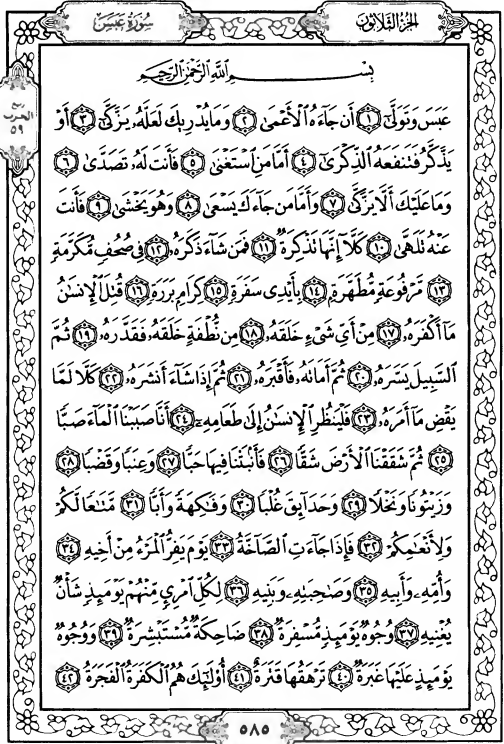 الجزء الثلاثون
سورة عبس
ربع
الحزب
٥٩
بِسْمِ اللَّهِ الرَّحْمَٰنِ الرَّحِيمِ
عَبَسَ وَتَوَلَّىٰٓ ١ أَن جَآءَهُ ٱلْأَعْمَىٰ ٢ وَمَا يُدْرِيكَ لَعَلَّهُۥ يَزَّكَّىٰٓ ٣ أَوْ
يَذَّكَّرُ فَتَنفَعَهُ ٱلذِّكْرَىٰٓ ٤ أَمَّا مَنِ ٱسْتَغْنَىٰ ٥ فَأَنتَ لَهُۥ تَصَدَّىٰ ٦
وَمَا عَلَيْكَ أَلَّا يَزَّكَّىٰ ٧ وَأَمَّا مَن جَآءَكَ يَسْعَىٰ ٨ وَهُوَ يَخْشَىٰ ٩ فَأَنتَ
عَنْهُ تَلَهَّىٰ ١٠ كَلَّآ إِنَّهَا تَذْكِرَةٌ ١١ فَمَن شَآءَ ذَكَرَهُۥ ١٢ فِى صُحُفٍ مُّكَرَّمَةٍ
١٣ مَّرْفُوعَةٍ مُّطَهَّرَةٍۭ ١٤ بِأَيْدِى سَفَرَةٍ ١٥ كِرَامٍۭ بَرَرَةٍ ١٦ قُتِلَ ٱلْإِنسَٰنُ
مَآ أَكْفَرَهُۥ ١٧ مِنْ أَىِّ شَىْءٍ خَلَقَهُۥ ١٨ مِن نُّطْفَةٍ خَلَقَهُۥ فَقَدَّرَهُۥ ١٩ ثُمَّ
ٱلسَّبِيلَ يَسَّرَهُۥ ٢٠ ثُمَّ أَمَاتَهُۥ فَأَقْبَرَهُۥ ٢١ ثُمَّ إِذَا شَآءَ أَنشَرَهُۥ ٢٢ كَلَّا لَمَّا
يَقْضِ مَآ أَمَرَهُۥ ٢٣ فَلْيَنظُرِ ٱلْإِنسَٰنُ إِلَىٰ طَعَامِهِۦٓ ٢٤ أَنَّا صَبَبْنَا ٱلْمَآءَ صَبًّا
٢٥ ثُمَّ شَقَقْنَا ٱلْأَرْضَ شَقًّا ٢٦ فَأَنۢبَتْنَا فِيهَا حَبًّا ٢٧ وَعِنَبًا وَقَضْبًا ٢٨
وَزَيْتُونًا وَنَخْلًا ٢٩ وَحَدَآئِقَ غُلْبًا ٣٠ وَفَٰكِهَةً وَأَبًّا ٣١ مَّتَٰعًا لَّكُمْ
وَلِأَنْعَٰمِكُمْ ٣٢ فَإِذَا جَآءَتِ ٱلصَّآخَّةُ ٣٣ يَوْمَ يَفِرُّ ٱلْمَرْءُ مِنْ أَخِيهِ ٣٤
وَأُمِّهِۦ وَأَبِيهِ ٣٥ وَصَٰحِبَتِهِۦ وَبَنِيهِ ٣٦ لِكُلِّ ٱمْرِئٍ مِّنْهُمْ يَوْمَئِذٍ شَأْنٌ
يُغْنِيهِ ٣٧ وُجُوهٌ يَوْمَئِذٍ مُّسْفِرَةٌ ٣٨ ضَاحِكَةٌ مُّسْتَبْشِرَةٌ ٣٩ وَوُجُوهٌ
يَوْمَئِذٍ عَلَيْهَا غَبَرَةٌ ٤٠ تَرْهَقُهَا قَتَرَةٌ ٤١ أُو۟لَٰٓئِكَ هُمُ ٱلْكَفَرَةُ ٱلْفَجَرَةُ ٤٢
٥٨٥